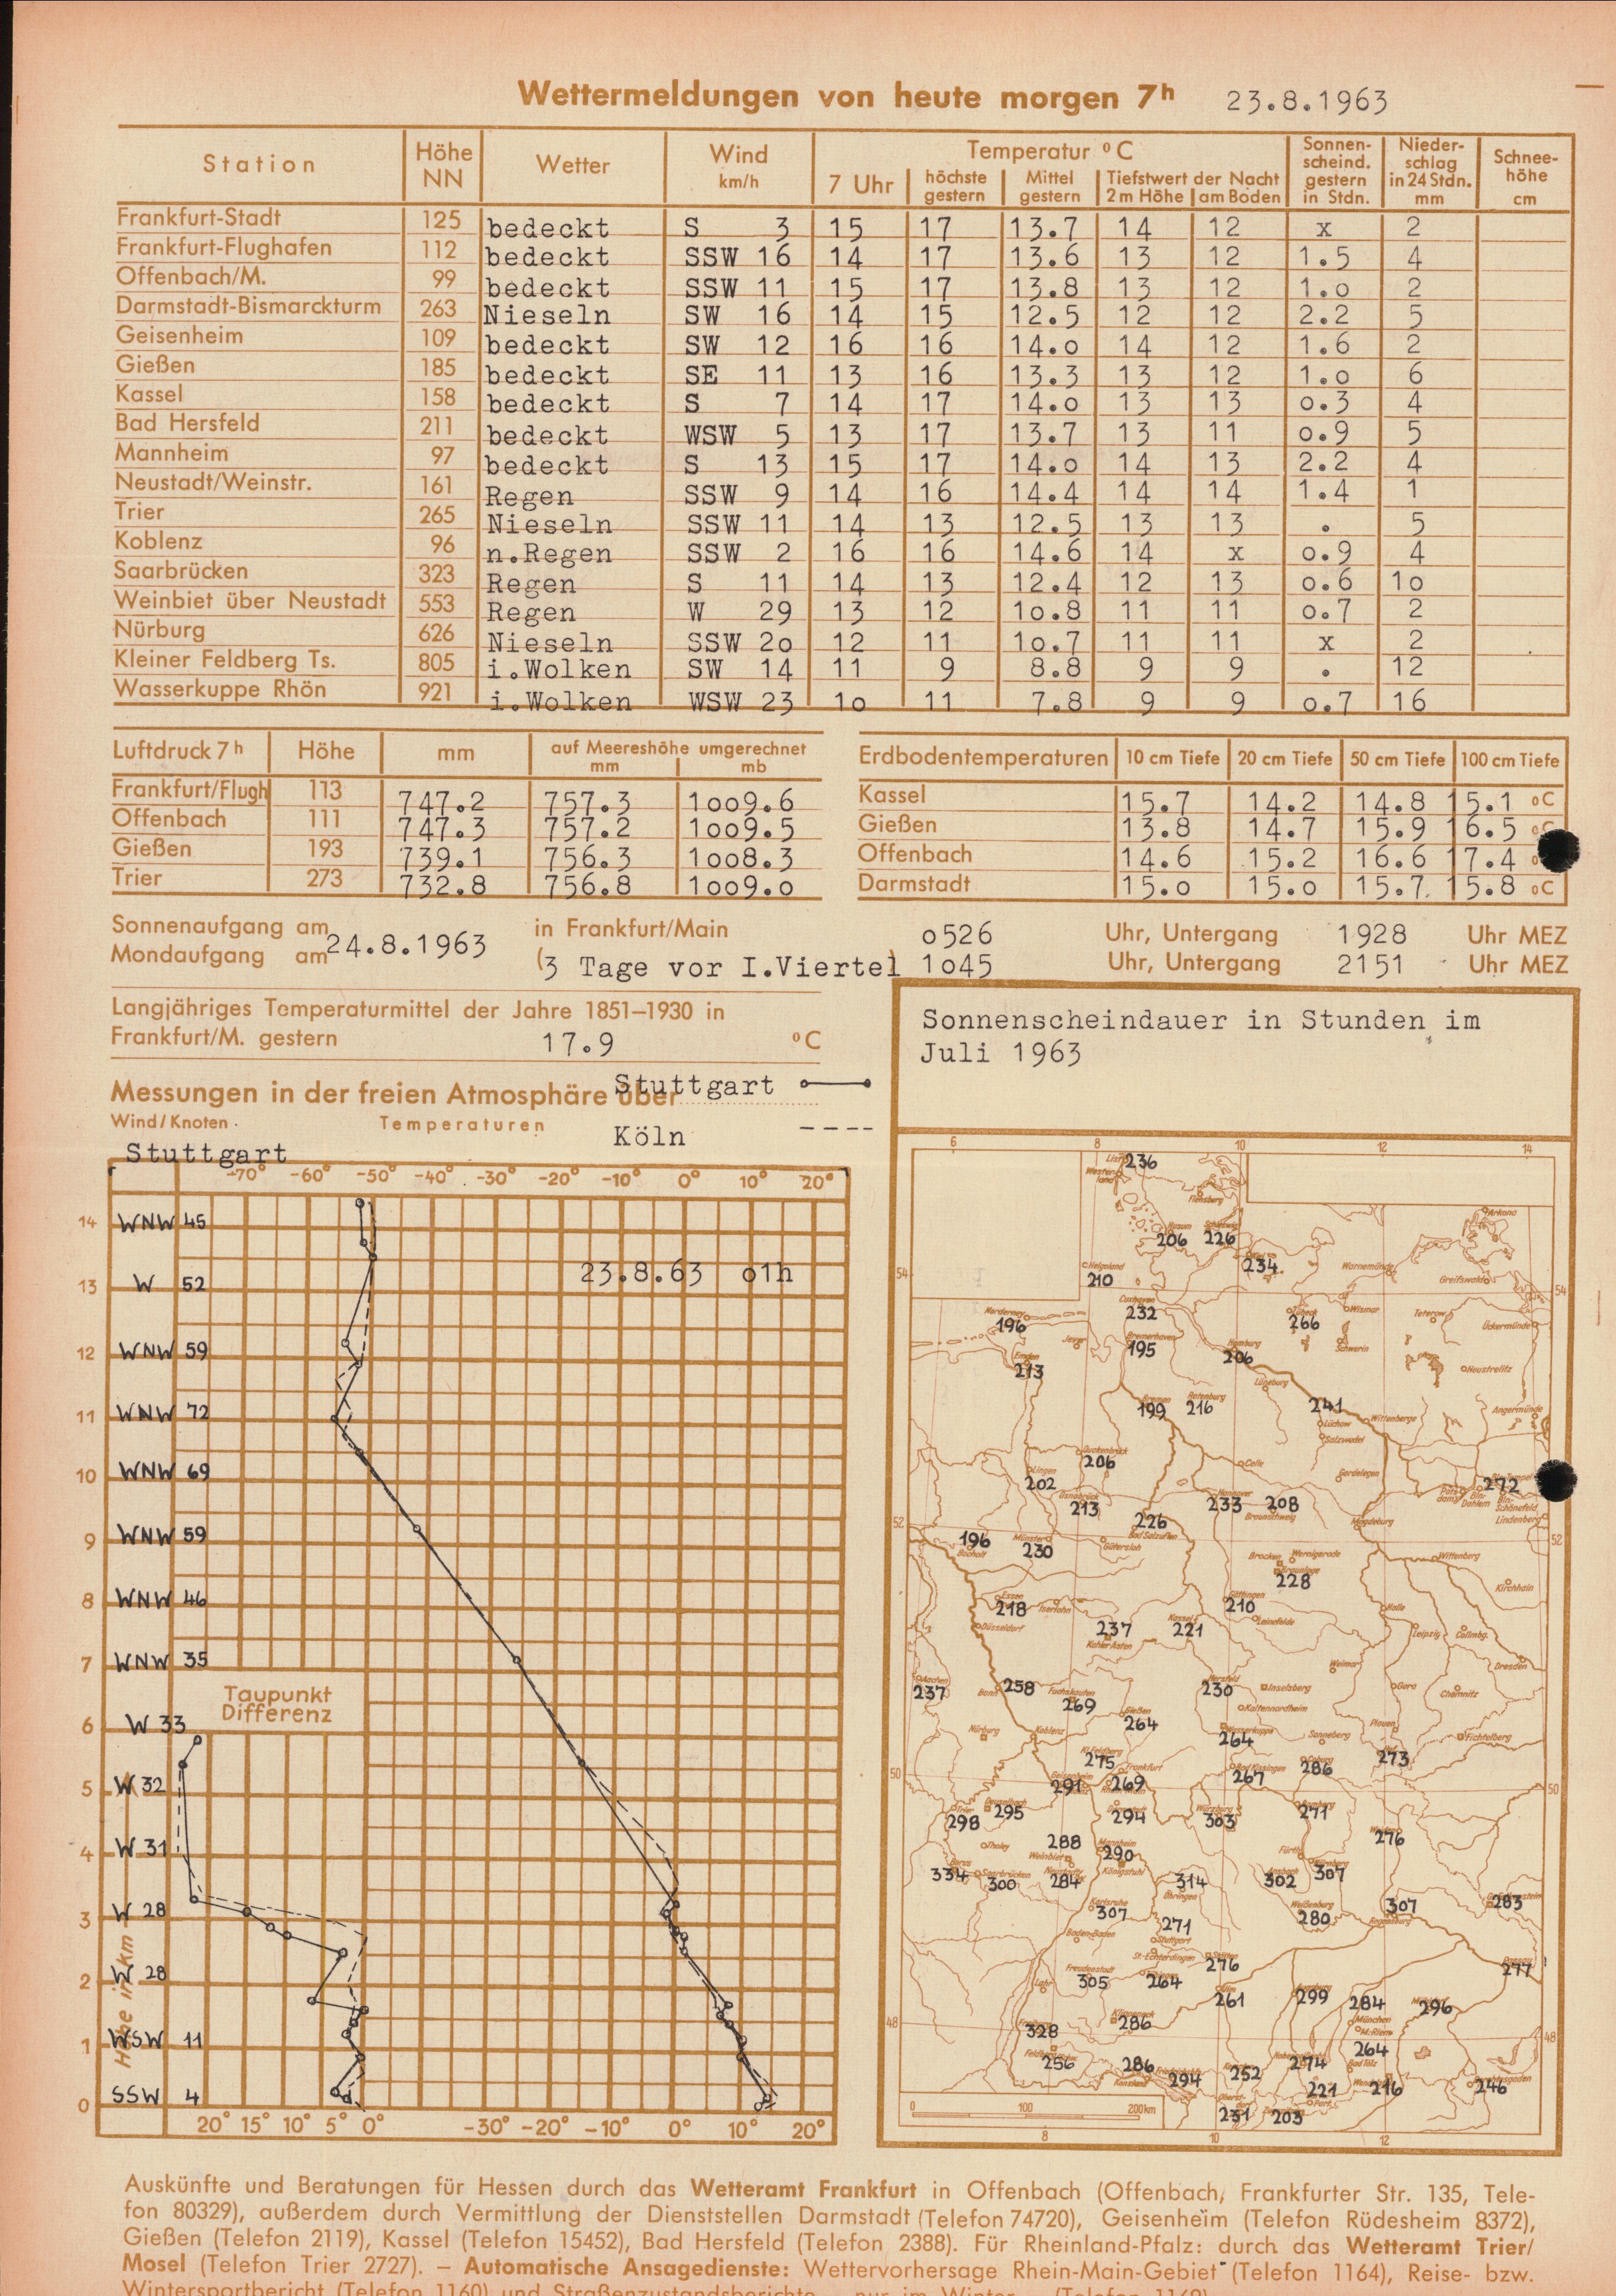 Wettermeldungen von heute morgen 7h 23.8.1963
Station Höhe NN Wetter Wind km/h Temperatur °C 7 Uhr höchste gestern Mittel gestern Tiefstwert der Nacht 2 m Höhe am Boden Sonnen-scheind. gestern in Stdn. Nieder-schlag in 24 Stdn. mm Schnee-höhe cm
Frankfurt-Stadt 125 bedeckt S 3 15 17 13.7 14 12 x 2
Frankfurt-Flughafen 112 bedeckt SSW 16 14 17 13.6 13 12 1.5 4
Offenbach/M. 99 bedeckt SSW 11 15 17 13.8 13 12 1.o 2
Darmstadt-Bismarckturm 263 Nieseln SW 16 14 15 12.5 12 12 2.2 5
Geisenheim 109 bedeckt SW 12 16 16 14.o 14 12 1.6 2
Gießen 185 bedeckt SE 11 13 16 13.3 13 12 1.o 6
Kassel 158 bedeckt S 7 14 17 14.o 13 13 o.3 4
Bad Hersfeld 211 bedeckt WSW 5 13 17 13.7 13 11 o.9 5
Mannheim 97 bedeckt S 13 15 17 14.o 14 13 2.2 4
Neustadt/Weinstr. 161 Regen SSW 9 14 16 14.4 14 14 1.4 1
Trier 265 Nieseln SSW 11 14 13 12.5 13 13 . 5
Koblenz 96 n.Regen SSW 2 16 16 14.6 14 x o.9 4
Saarbrücken 323 Regen S 11 14 13 12.4 12 13 o.6 1o
Weinbiet über Neustadt 553 Regen W 29 13 12 1o.8 11 11 o.7 2
Nürburg 626 Nieseln SSW 2o 12 11 1o.7 11 11 x 2
Kleiner Feldberg Ts. 805 i.Wolken SW 14 11 9 8.8 9 9 . 12
Wasserkuppe Rhön 921 i.Wolken WSW 23 1o 11 7.8 9 9 o.7 16
Luftdruck 7h Höhe mm auf Meereshöhe umgerechnet mm mb
Frankfurt/Flugh 113 747.2 757.3 1oo9.6
Offenbach 111 747.3 757.2 1oo9.5
Gießen 193 739.1 756.3 1oo8.3
Trier 273 732.8 756.8 1oo9.o
Erdbodentemperaturen 10 cm Tiefe 20 cm Tiefe 50 cm Tiefe 100 cm Tiefe
Kassel 15.7 14.2 14.8 15.1 °C
Gießen 13.8 14.7 15.9 16.5 °C
Offenbach 14.6 15.2 16.6 17.4
Darmstadt 15.o 15.o 15.7 15.8 °C
Sonnenaufgang am in Frankfurt/Main o526 Uhr, Untergang 1928 Uhr MEZ
Mondaufgang am 24.8.1963 (3 Tage vor I.Viertel) 1o45 Uhr, Untergang 2151 Uhr MEZ
Langjähriges Temperaturmittel der Jahre 1851–1930 in
Frankfurt/M. gestern 17.9 °C
Messungen in der freien Atmosphäre über Stuttgart
Wind/Knoten Temperaturen Köln
Stuttgart
-70° -60° -50° -40° -30° -20° -10° 0° 10° 20°
14 WNW 45
23.8.63 o1h
13 W 52
12 WNW 59
11 WNW 72
10 WNW 69
9 WNW 59
8 WNW 46
7 WNW 35
Taupunkt
Differenz
6 W 33
5 W 32
4 W 31
3 W 28
2 W 28
1 WSW 11
0 SSW 4
Höhe in km
20° 15° 10° 5° 0° -30° -20° -10° 0° 10° 20°
Sonnenscheindauer in Stunden im
Juli 1963
6 8 10 12 14
236
Flensburg
Husum Schleswig
206 226
Helgoland 234
210 Warnemünde Greifswald Arkona
54 54
Norderney 196 Cuxhaven 232 Lübeck 266 Wismar Teterow Ückermünde
Jever Bremerhaven 195 Hamburg 206 Schwerin
Emden 213 Neustrelitz
Lüneburg
Bremen 199 Rotenburg 216 241 Lüchow Wittenberge Angermünde
Salzwedel
Quakenbrück 206 Celle Gardelegen
Lingen 202 272
Osnabrück 213 Hannover 233 208 Braunschweig
226 Bad Salzuflen Magdeburg Lindenberg
52 52
196 Bocholt Münster 230 Gütersloh
Brocken Wernigerode Wittenberg
228 Kirchhain
Essen 218 Iserlohn Göttingen 210 Leinefelde Halle
Düsseldorf 237 Kahler Asten Kassel 221 Leipzig
Weimar Dresden
Aachen 237 Bonn 258 Fuchskauten 269 Hersfeld 230 Inselsberg Gera Chemnitz
Gießen 264 Kaltennordheim
Nürburg Koblenz Wasserkuppe 264 Sonneberg Plauen Fichtelberg
Kl.Feldberg 275 Frankfurt Coburg 286 273
50 Geisenheim 291 269 Bad Kissingen 267 50
Trier 298 295 294 Würzburg 303 271
276
Tholey 288 Weinbiet Mannheim 290 Fürth
334 Saarbrücken 300 284 Königstuhl 314 Öhringen Ansbach 302 307
Karlsruhe 307 Weißenburg 280 307 Regensburg 283
Baden-Baden 271 Stuttgart
St.-Echterdingen 276 277
Freudenstadt 305 264
Lahr Ulm 261 Augsburg 299 284 296
48 Klippeneck 286 München 48
328 M.-Riem
Feldberg 256 286 Konstanz 294 252 274 264 Bad Tölz
221 216 246
231 203
0 100 200km
8 10 12
Auskünfte und Beratungen für Hessen durch das Wetteramt Frankfurt in Offenbach (Offenbach, Frankfurter Str. 135, Tele-
fon 80329), außerdem durch Vermittlung der Dienststellen Darmstadt (Telefon 74720), Geisenheim (Telefon Rüdesheim 8372),
Gießen (Telefon 2119), Kassel (Telefon 15452), Bad Hersfeld (Telefon 2388). Für Rheinland-Pfalz: durch das Wetteramt Trier/
Mosel (Telefon Trier 2727). – Automatische Ansagedienste: Wettervorhersage Rhein-Main-Gebiet (Telefon 1164), Reise- bzw.
Wintersportbericht (Telefon 1160) und Straßenzustandsberichte – nur im Winter – (Telefon 1169)